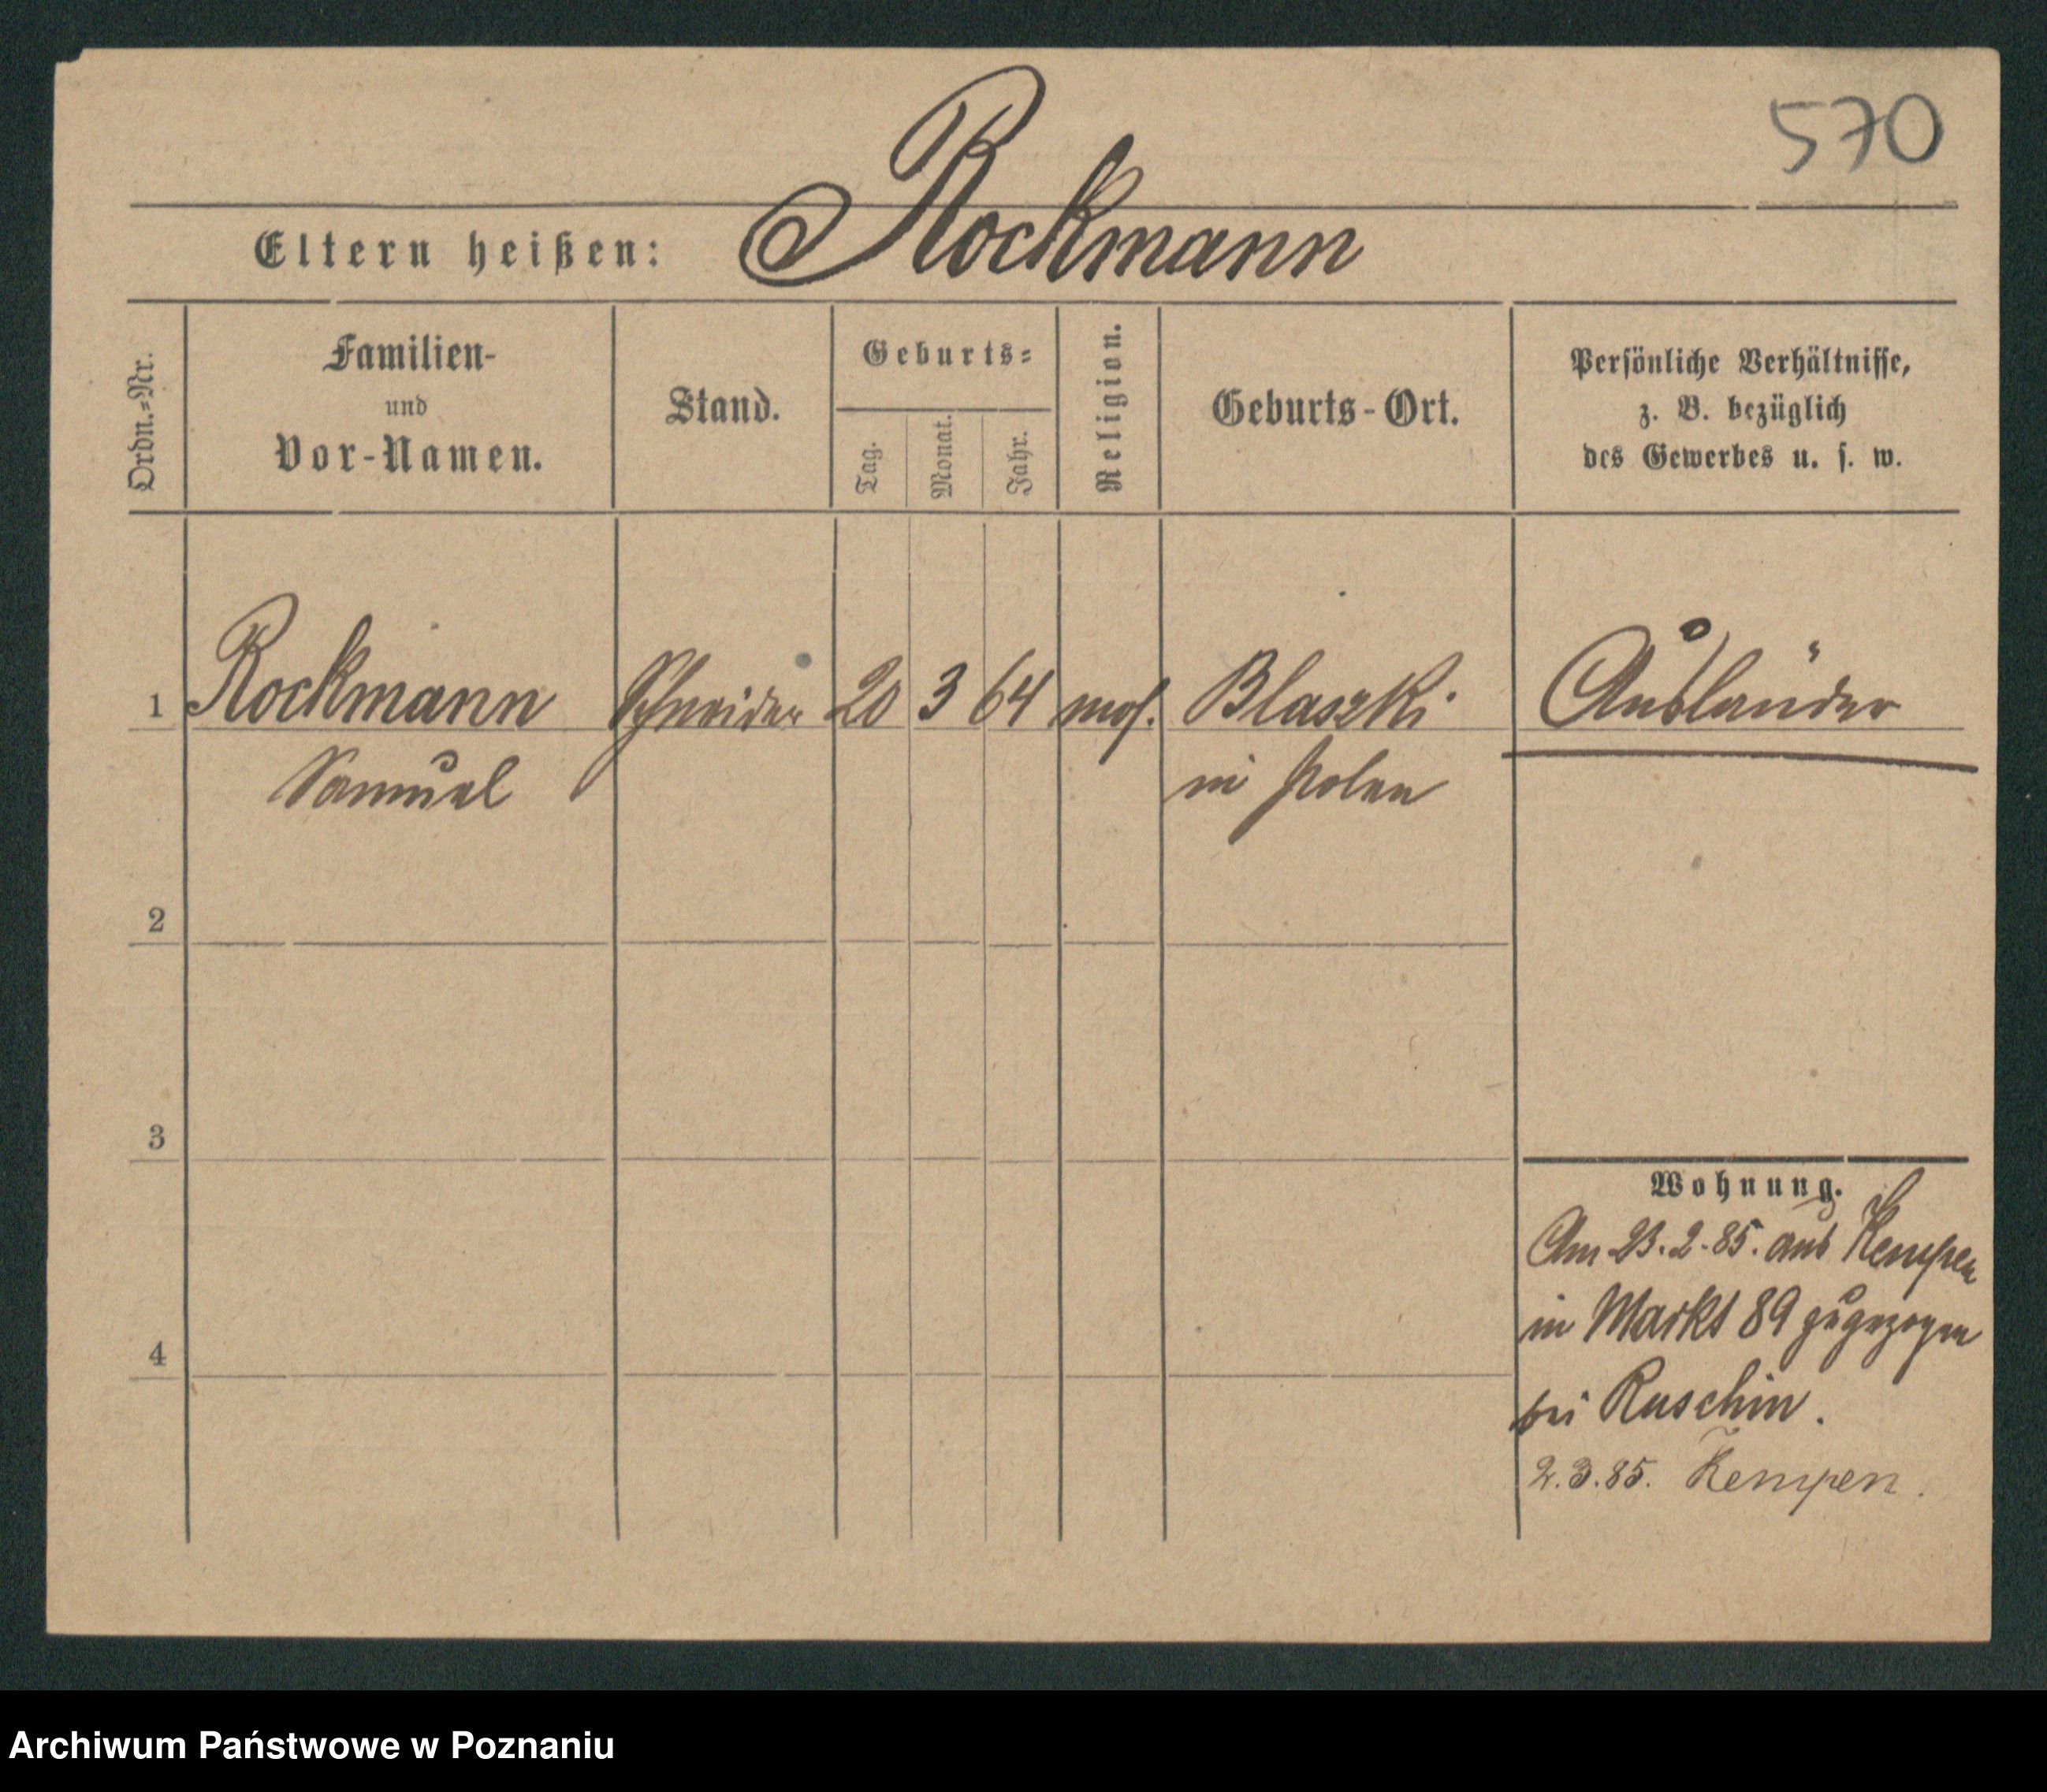 570
Eltern heißen: Rockmann
Ordn.=Nr.
Familien-
und
Vor-Namen.
Stand.
Geburts=
Tag.
Monat.
Jahr.
Religion.
Geburts-Ort.
Persönliche Verhältnisse,
z. B. bezüglich
des Gewerbes u. s. w.
1 Rockmann Schneider 20 3 64 mos. Blaszki Ausländer
Samuel in Polen
2
3
4
Wohnung.
Am 23.2.85. aus Kempen
in Markt 89 zugezogen
bei Ruschin.
2.3.85. Kempen.
Archiwum Państwowe w Poznaniu